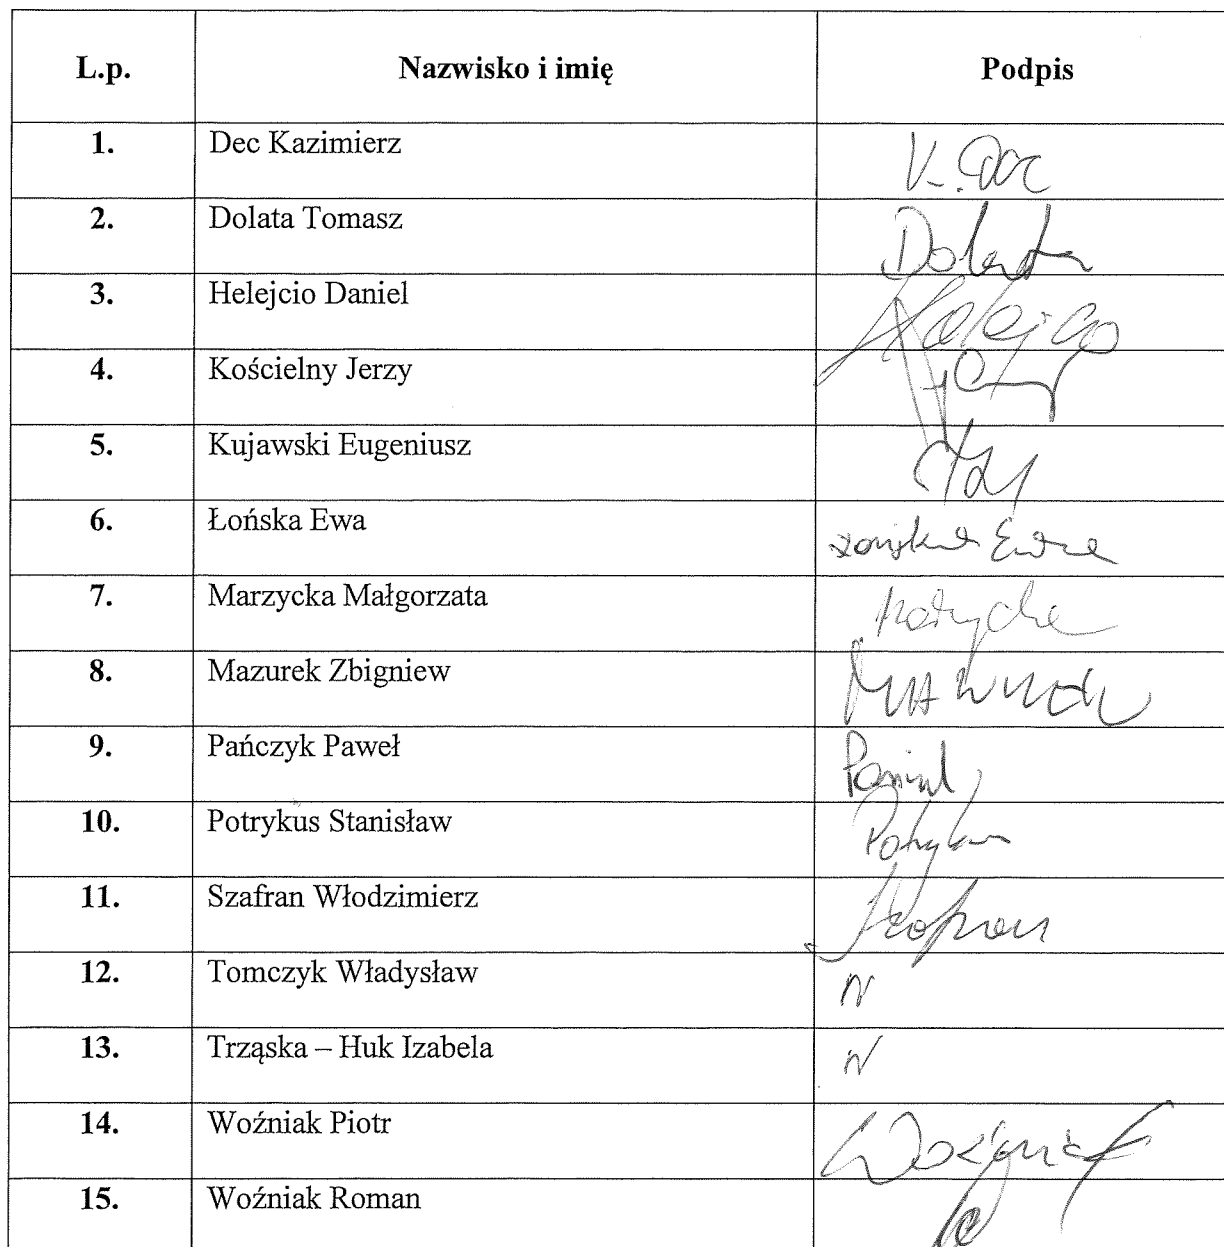 L.p. Nazwisko i imię Podpis
1. Dec Kazimierz K. Dec
2. Dolata Tomasz Dolata
3. Helejcio Daniel Helejcio
4. Kościelny Jerzy
5. Kujawski Eugeniusz
6. Łońska Ewa Łońska Ewa
7. Marzycka Małgorzata
8. Mazurek Zbigniew
9. Pańczyk Paweł
10. Potrykus Stanisław Potrykus
11. Szafran Włodzimierz Szafran
12. Tomczyk Władysław N
13. Trząska – Huk Izabela N
14. Woźniak Piotr Woźniak
15. Woźniak Roman